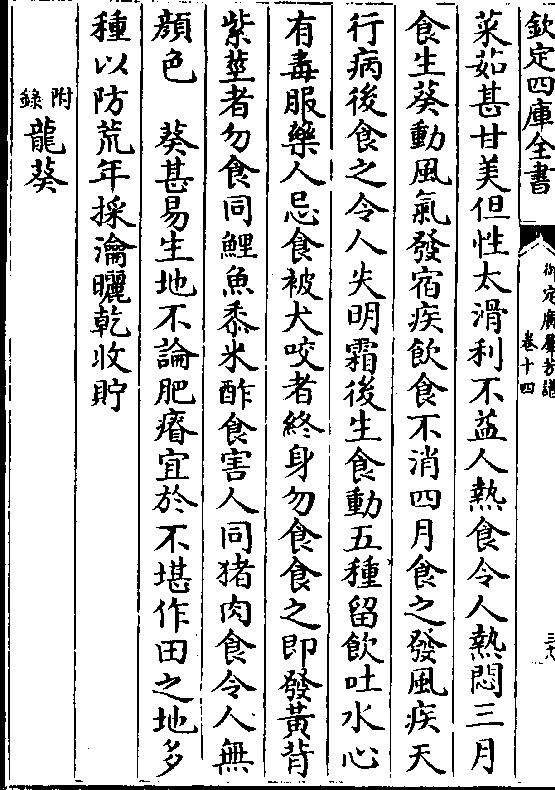 欽定四庫全書
御定廣羣芳譜
卷十四
菜茹甚甘美但性太滑利不益人熱食令人熱悶三月
食生葵動風氣發宿疾飲食不消四月食之發風疾天
行病後食之令人失明霜後生食動五種留飲吐水心
有毒服藥人忌食被犬咬者終身勿食食之即發黃背
紫莖者勿食同鯉魚黍米酢食害人同猪肉食令人無
顔色　葵甚易生地不論肥瘠宜於不堪作田之地多
種以防荒年採瀹曬乾收貯
附錄龍葵